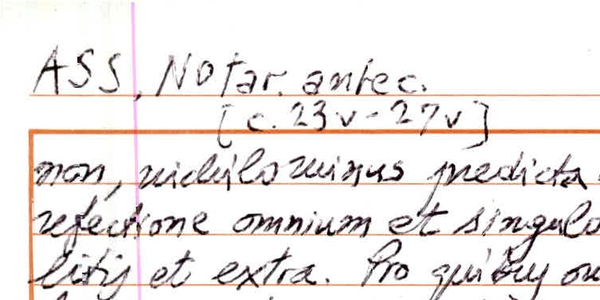 ASS, Notar. antec.
[c. 23v-27v]
non, nichilominus predicta
refectione omnium et singulo
litis et extra. Pro quibus